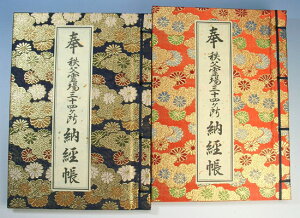 奉 秩父霊場三十四ヶ所 納経帳
奉 秩父霊場三十四ヶ所 納経帳